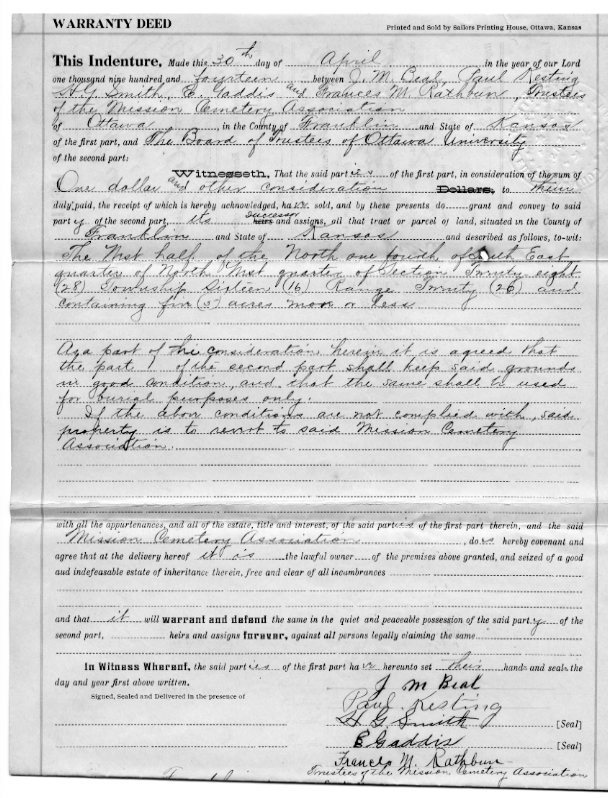 WARRANTY DEED
Printed and Sold by Sailors Printing House, Ottawa, Kansas
This Indenture, Made this 30th day of April in the year of our Lord
one thousand nine hundred and fourteen between J. M. Beal, Paul Kesting
H. G. Smith, E. Gaddis and Frances M. Rathbun, Trustees
of the Mission Cemetery Association
of Ottawa in the County of Franklin and State of Kansas
of the first part, and The Board of Trustees of Ottawa University
of the second part:
Witnesseth, That the said parties of the first part, in consideration of the sum of
One dollar and other consideration Dollars, to their
duly paid, the receipt of which is hereby acknowledged, have sold, and by these presents do grant and convey to said
party of the second part, its successor heirs and assigns, all that tract or parcel of land, situated in the County of
Franklin and State of Kansas and described as follows, to-wit:
The West half of the North one fourth of South East
quarter of North West quarter of Section Twenty eight
(28) Township Sixteen (16) Range Twenty (26) and
containing five (5) acres more or less
As a part of the consideration herein it is agreed that
the part of the second part shall keep said grounds
in good condition, and that the same shall be used
for burial purposes only.
If the above conditions are not complied with, said
property is to revert to said Mission Cemetery
Association.
with all the appurtenances, and all of the estate, title and interest, of the said parties of the first part therein, and the said
Mission Cemetery Association, does hereby covenant and
agree that at the delivery hereof it is the lawful owner of the premises above granted, and seized of a good
and indefeasible estate of inheritance therein, free and clear of all incumbrances
and that it will warrant and defend the same in the quiet and peaceable possession of the said party of the
second part, heirs and assigns forever, against all persons legally claiming the same
In Witness Whereof, the said parties of the first part have hereunto set their hands and seals the
day and year first above written.
Signed, Sealed and Delivered in the presence of
J M Beal
Paul Kesting
H G Smith [Seal]
E Gaddis [Seal]
Frances M. Rathbun
Trustees of the Mission Cemetery Association